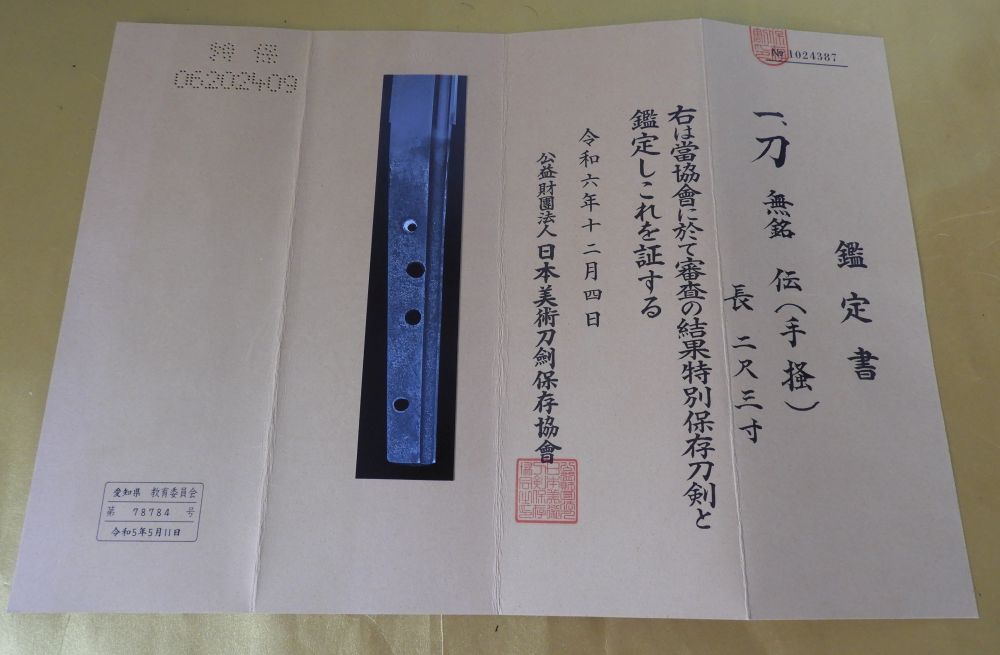 № 1024387
鑑定書
一、刀 無銘 伝(手掻)
長 二尺三寸
右は當協會に於て審査の結果特別保存刀剣と
鑑定しこれを証する
令和六年十二月四日
公益財團法人 日本美術刀劍保存協會
特保
06202409
愛知県 教育委員会
第 78784 号
令和5年5月11日